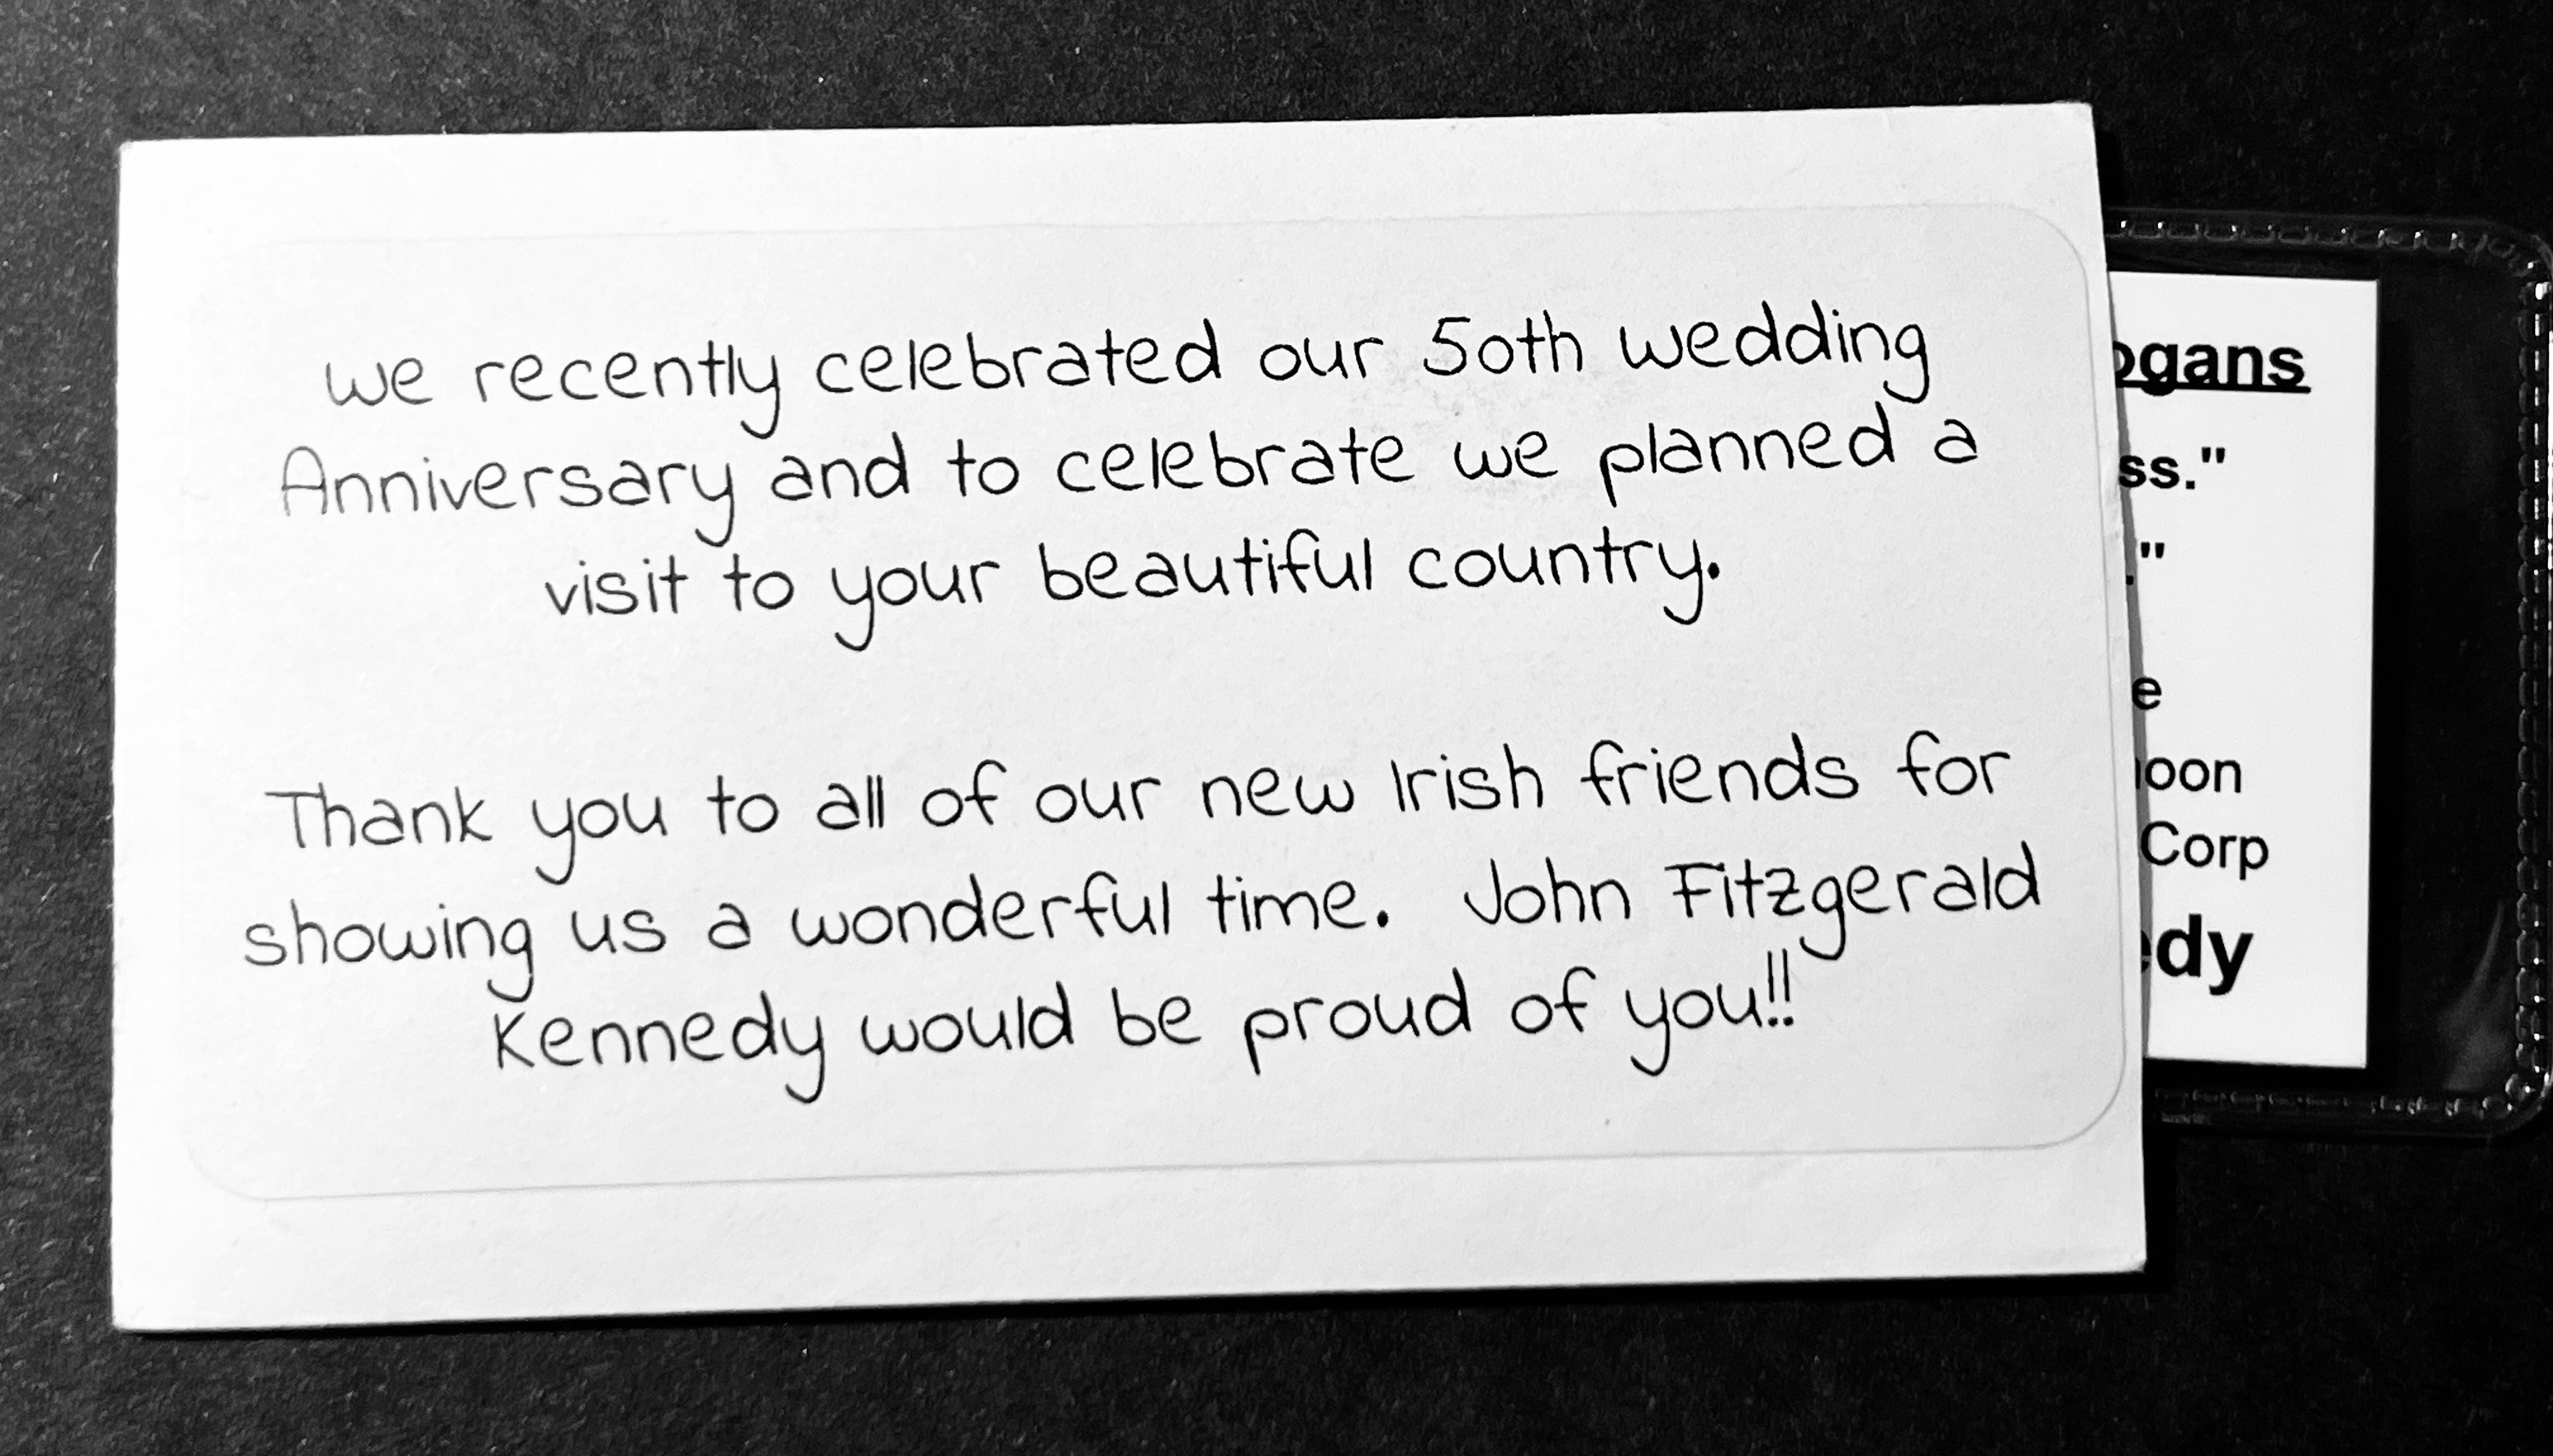 we recently celebrated our 50th wedding
Anniversary and to celebrate we planned a
visit to your beautiful country.
Thank you to all of our new Irish friends for
showing us a wonderful time. John Fitzgerald
Kennedy would be proud of you!!
ss."
."
e
Corp